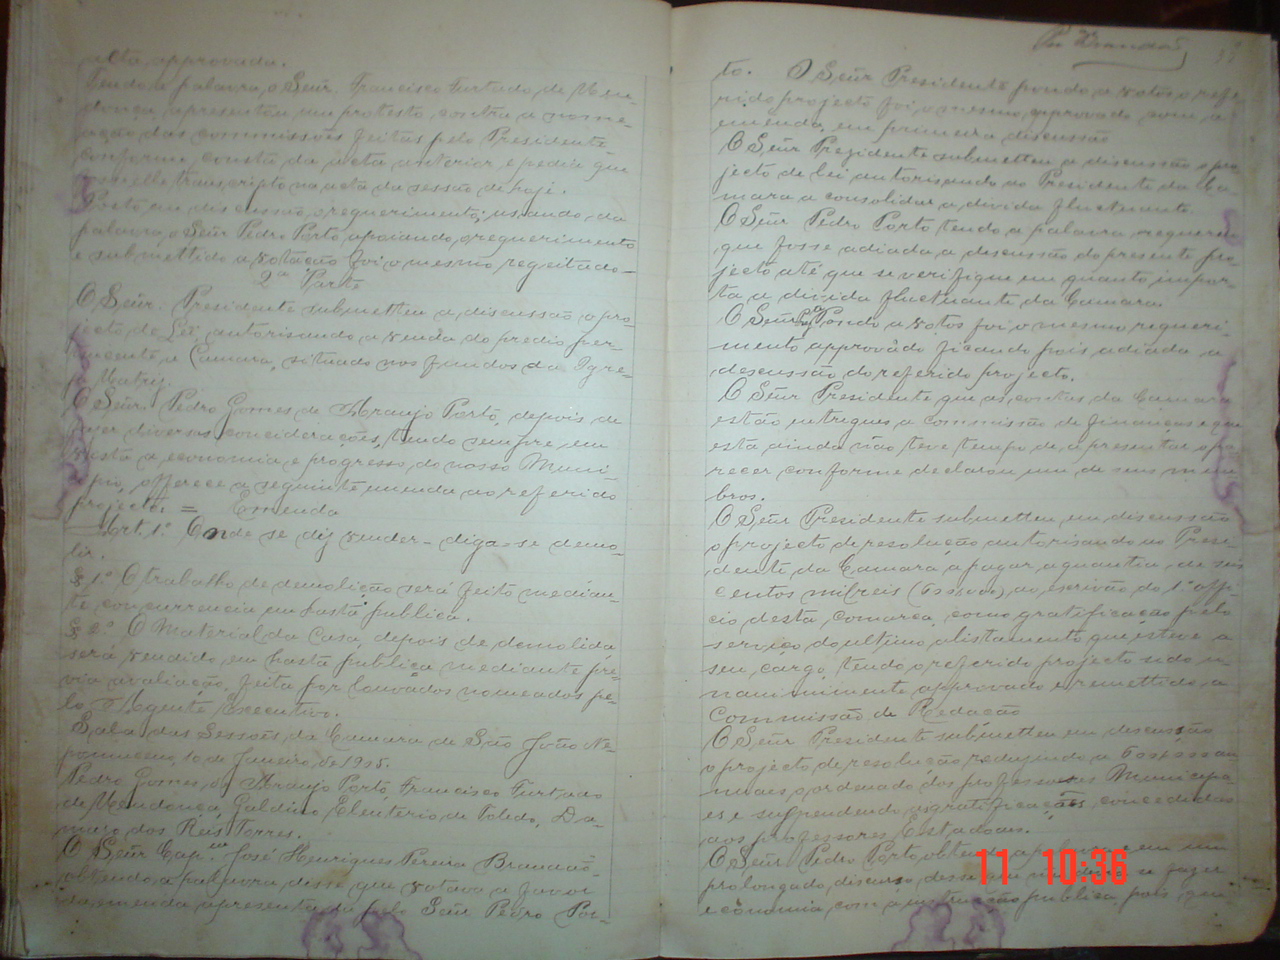 acta, approvada.
Tendo a palavra, o Señr. Francisco Furtado de Men-
donça apresentou um protesto contra a nome-
ação das commissões feitas pelo Presidente
conforme consta da acta anterior e pediu que
fosse elle transcripto na acta da sessão de hoje.
Posto em discussão, o requerimento; usando, da
palavra, o Señr Pedro Porto, apoiando, o requerimento
e submettido a votação foi o mesmo regeitado
2ª Parte
O Señr. Presidente submetteu a discussão o pro-
jecto de Lei, autorisando a venda do predio per-
tencente a Camara, situado nos fundos da Igre-
ja Matriz.
O Señr. Pedro Gomes de Araujo Porto, depois de
fazer diversas conciderações, tendo sempre em
vista a economia e progresso do nosso Muni-
cipio, offerece a seguinte emenda ao referido
projecto = Emenda
Art. 1º Onde se diz vender - diga-se demo-
lir.
§ 1º O trabalho de demolição será feito median-
te concurrencia em hasta publica.
§ 2º O Material da Casa, depois de demolida
será vendido, em hasta publica mediante pre-
via avaliação, feita por louvados nomeados pe-
lo Agente Executivo.
Sala das Sessões da Camara de São João Ne-
pomuceno, 10 de Janeiro, de 1905.
Pedro Gomes, de Araujo Porto, Francisco Furtado
de Mendonça, Galdino Eleuterio de Toledo, Da-
maso dos Reis Torres.
O Señr Cap.m José Henriques Pereira Brandão,
obtendo, a palavra disse, que votava a favor
da emenda apresentada pelo Señr Pedro Por-
Brandão
to. O Señr Presidente pondo a votos o refe-
rido projecto foi, o mesmo, approvado com a
emenda, em primeira discussão
O Señr Prezidente submetteu a discussão o pro-
jecto de lei autorisando ao Presidente da Ca-
mara, a consolidar a divida fluctuante.
O Señr Pedro Porto tendo, a palavra requereu
que fosse adiada a discussão do presente pro-
jecto até que se verifique em quanto impor-
ta a divida fluctuante da Camara.
O Señr Pondo a votos foi o mesmo requeri-
mento approvado ficando pois adiada a
descussão do referido projecto.
O Señr Presidente que as contas da Camara
estão entregues, a Commissão de finanças e que
esta ainda não teve tempo de apresentar o pa-
recer conforme declarou um de seus mem-
bros.
O Señr Presidente submetteu em discussão
o projecto de resolução autorisando ao Presi-
dente da Camara, a pagar, a quantia de seis
centos milreis (600$000) ao escrivão do 1º offi-
cio desta, comarca, como gratificação pelo
serviço do ultimo, alistamento que esteve a
seu, cargo, tendo o referido projecto sido u-
nanimimente approvado e remettido, a
Commissão de Redação
O Señr Presidente submetteu em discussão
o projecto de resolução, reduzindo, a
nuaes, o ordenado dos professores Municipa-
es e suspendendo as gratificações, concedidas
aos professores Estadoaes.
O Señr Pedro Porto, obtendo a palavra em um
prolongado, discurso, disse se fazer
economia, com a instrucção publica, pois que
11 10:36